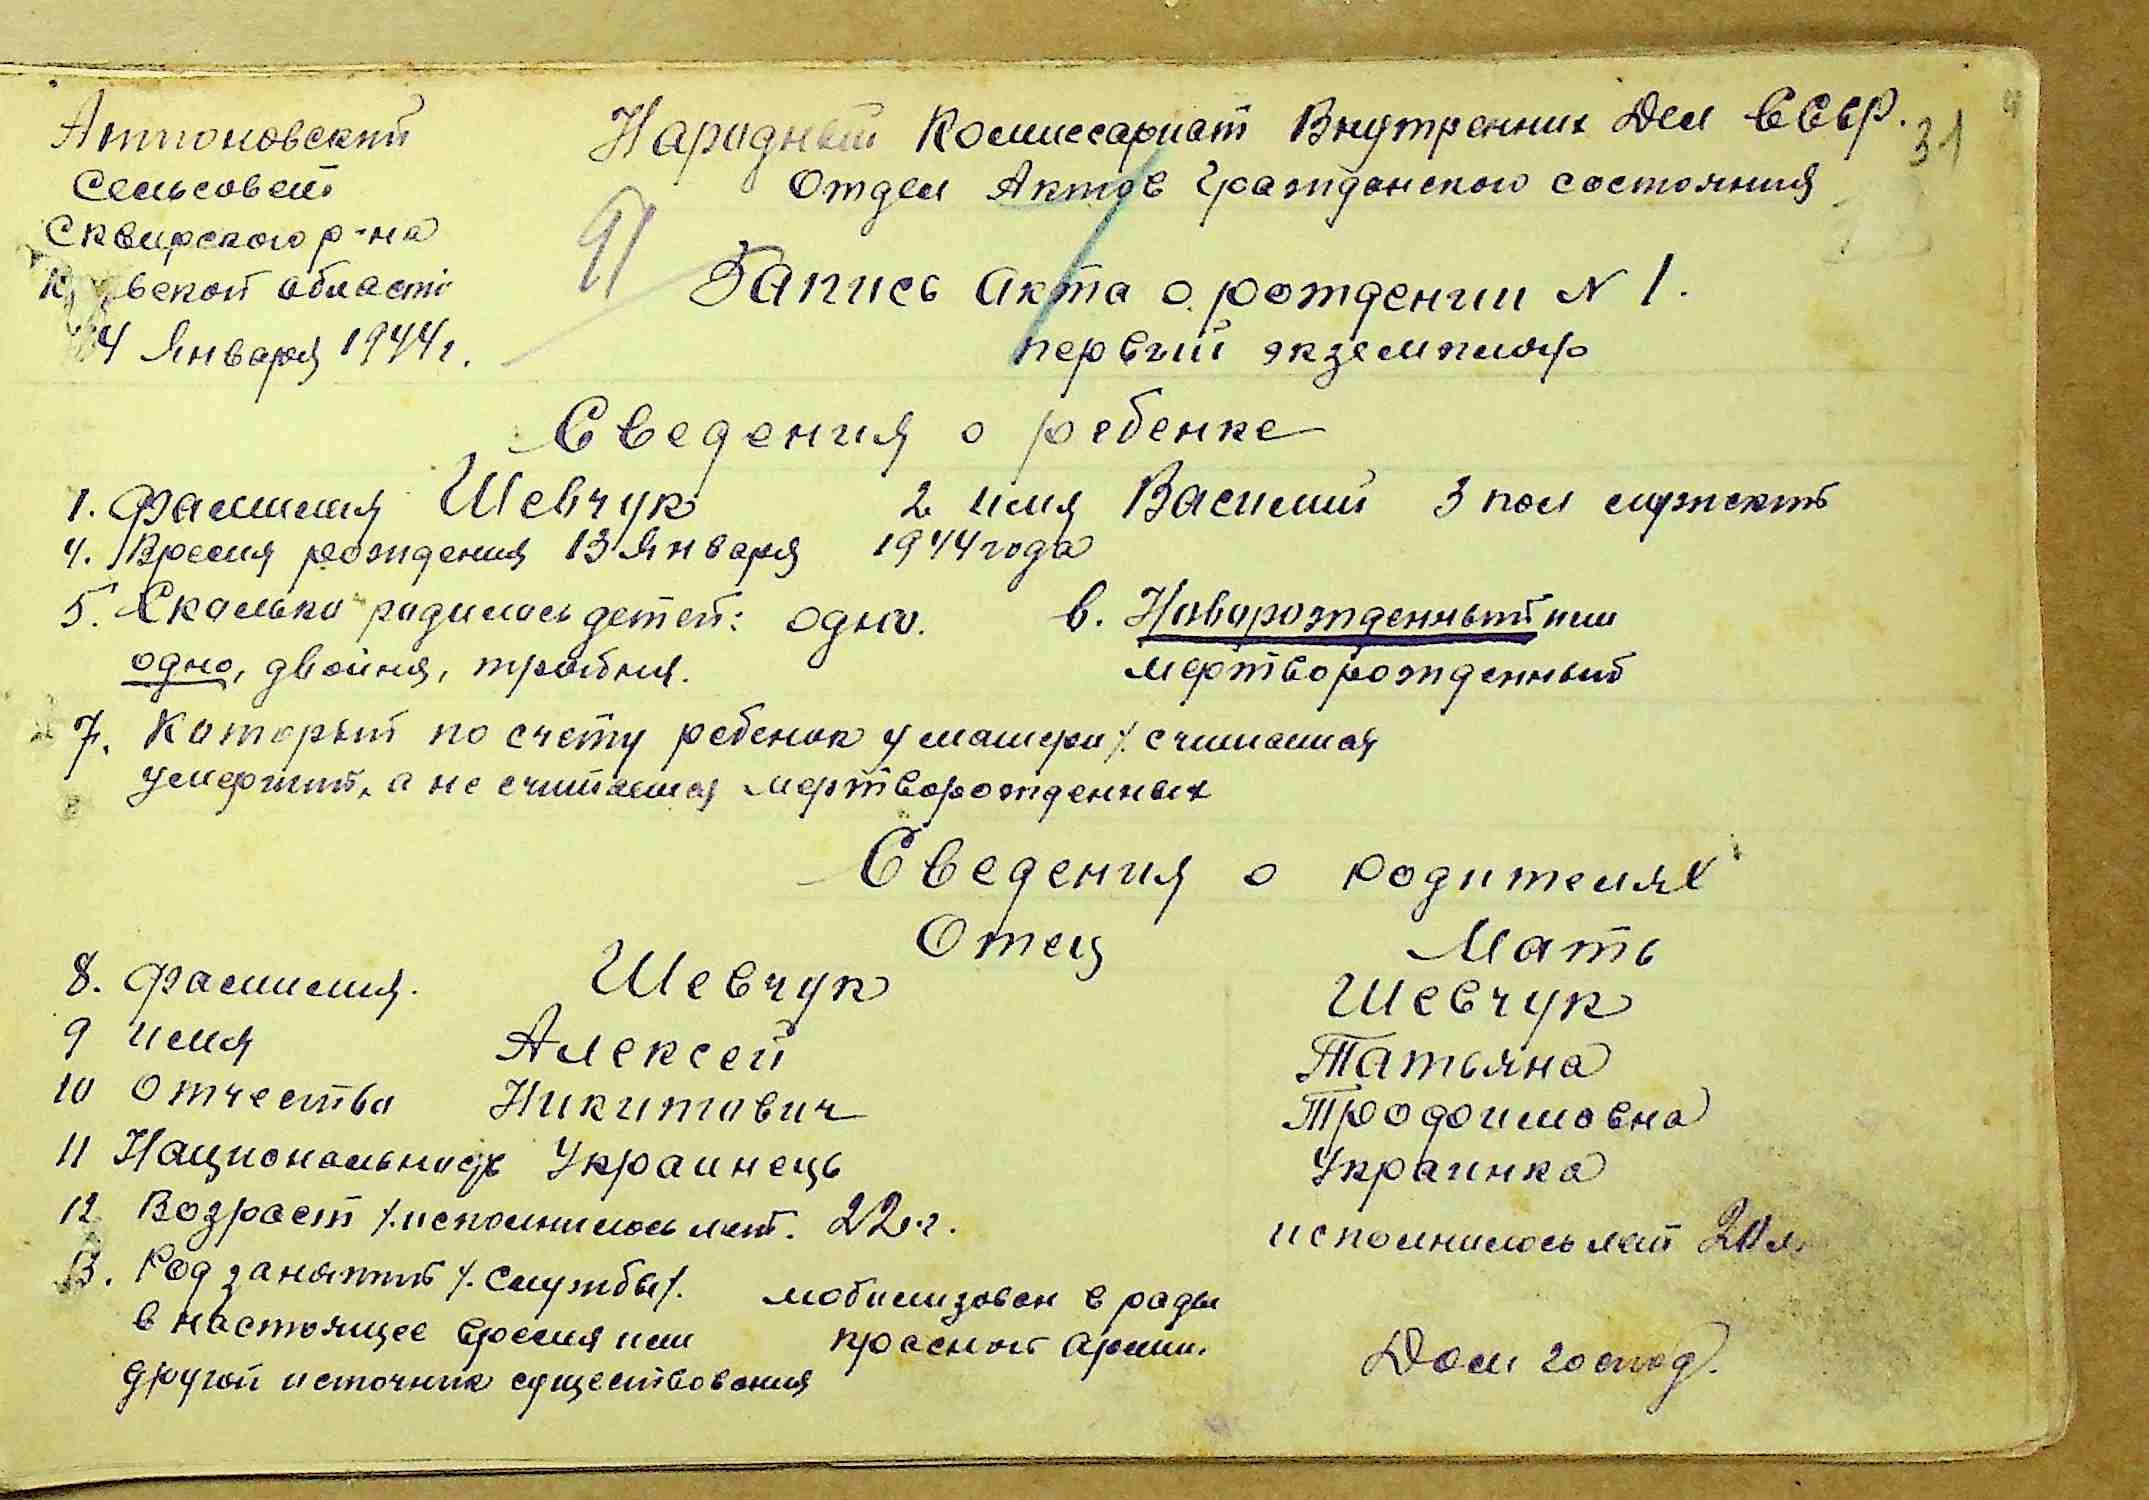 Антоновский
Сельсовет
Сквирского р-на
области
4 Января 1944 г.
Народный Комиссариат Внутренних Дел СССР.
31
Отдел Актов Гражданского состояния
91
Запись акта о рождении N 1.
первый экземпляр
Сведения о ребенке
1. Фамилия Шевчук 2. имя Василий 3 пол
4. Время рождения 13 Января 1944 года
5. Сколько родилось детей: одно. в. Новорожденный или
одно, двойня, тройня. мертворожденный
7. Который по счету ребенок у матери /. считая
умерших, а не считая мертворожденных
Сведения о родителях
Отец Мать
8. Фамилия. Шевчук Шевчук
9 имя Алексей Татьяна
10 Отчество Никитович Трофимовна
11 Национальность Украинець Украинка
12 Возраст /. исполнилось лет. 22 г. исполнилось лет
13. Род занятий /. службы /. мобилизован в ряды
в настоящее время или красной армии.
другой источник существования Дом господ.